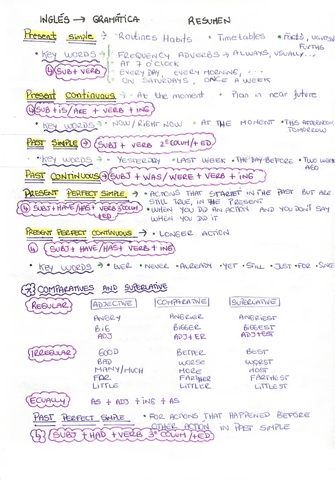 INGLÉS → GRAMÁTICA RESUMEN
Present simple → · Routines Habits · Timetables · FACTS, UNIVERSAL TRUTHS
· KEY WORDS → FREQUENCY ADVERBS → ALWAYS, USUALLY...
↳ SUBJ + VERB · AT 7 O'CLOCK
· EVERY DAY, EVERY MORNING, ...
· ON SATURDAYS, ONCE A WEEK
Present continuous → · At the moment · Plan in near future
↳ SUBJ + IS/ARE + VERB + ING
· KEY WORDS → · NOW/RIGHT NOW · AT THE MOMENT · THIS AFTERNOON, TOMORROW
PAST SIMPLE → SUBJ + VERB 2ª COLUM/+ED
· KEY WORDS → · YESTERDAY · LAST WEEK · THE DAY BEFORE · TWO WEEKS AGO
PAST CONTINUOUS → SUBJ + WAS/WERE + VERB + ING
PRESENT PERFECT SIMPLE → · ACTIONS THAT STARTET IN THE PAST BUT ARE
↳ SUBJ + HAVE/HAS + VERB 3ª COLUM/+ED STILL TRUE, IN THE PRESENT
· WHEN YOU DID AN ACTION AND YOU DON'T SAY
WHEN YOU DID IT
PRESENT PERFECT CONTINUOUS → · LONGER ACTION
↳ SUBJ + HAVE/HAS + VERB + ING
· KEY WORDS → · EVER · NEVER · ALREADY · YET · STILL · JUST · FOR · SINCE
COMPARATIVES AND SUPERLATIVE
REGULAR ADJECTIVE COMPARATIVE SUPERLATIVE
ANGRY ANGRIER ANGRIEST
BIG BIGGER BIGGEST
ADJ ADJ+ER ADJ+EST
IRREGULAR GOOD BETTER BEST
BAD WORSE WORST
MANY/MUCH MORE MOST
FAR FARTHER FARTHEST
LITTLE LITTLER LITTLEST
EQUALLY AS + ADJ + ING + AS
PAST PERFECT SIMPLE · FOR ACTIONS THAT HAPPENED BEFORE
OTHER ACTION IN PAST SIMPLE
↳ SUBJ + HAD + VERB 3ª COLUM/+ED